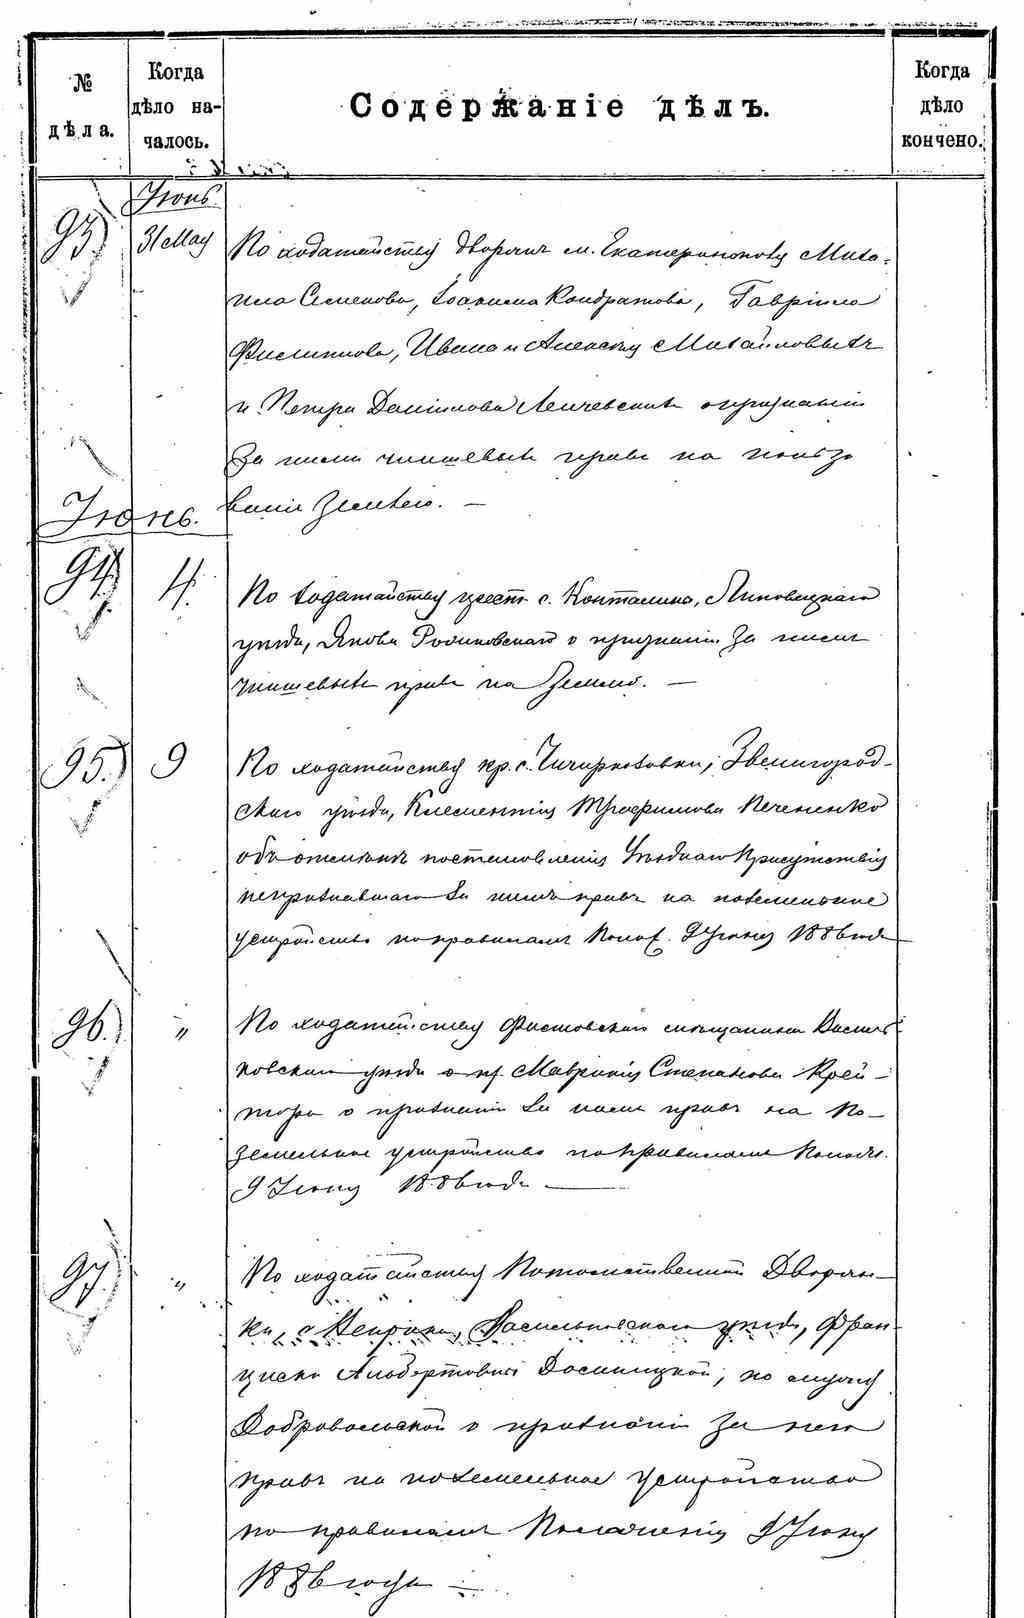 № дѣла.
Когда дѣло на-
чалось.
Содержаніе дѣлъ.
Когда дѣло
кончено.
Іюнь
93) 31 Мая По ходатайству дворянъ м. Екатеринополя Миха-
ила Семенова, Іоакима Кондратова, Гавріила
Филиппова, Ивана и Алексѣя Михайловыхъ
и Петра Данилова о признаніи
за ними чиншевыхъ правъ на пользо
ваніе землею. —
Іюнь.
94) 4. По ходатайству крест. с. Липовецкаго
уѣзда, Якова о признаніи за нимъ
чиншевыхъ правъ на землю. —
95.) 9 По ходатайству кр. с. Звенигород-
скаго уѣзда, Климентія Трофимова Печененко
объ отмѣнѣ постановленія Уѣзднаго Присутствія
непризнавшаго за нимъ правъ на поземельное
устройство по правиламъ Полож. 9 Іюня 1886 года
96.) " По ходатайству Фастовскаго мѣщанина Василь-
ковскаго уѣзда Степанова Крей-
тора о признаніи за нимъ правъ на по-
земельное устройство по правиламъ Полож.
9 Іюня 1886 года —
97.) " По ходатайству Потомственной Дворян-
ки, Васильковскаго уѣзда, Фран-
циски Альбертовны по мужу
Добровольской о признаніи за нею
правъ на поземельное устройство
по правиламъ Положенія 9 Іюня
1886 года —